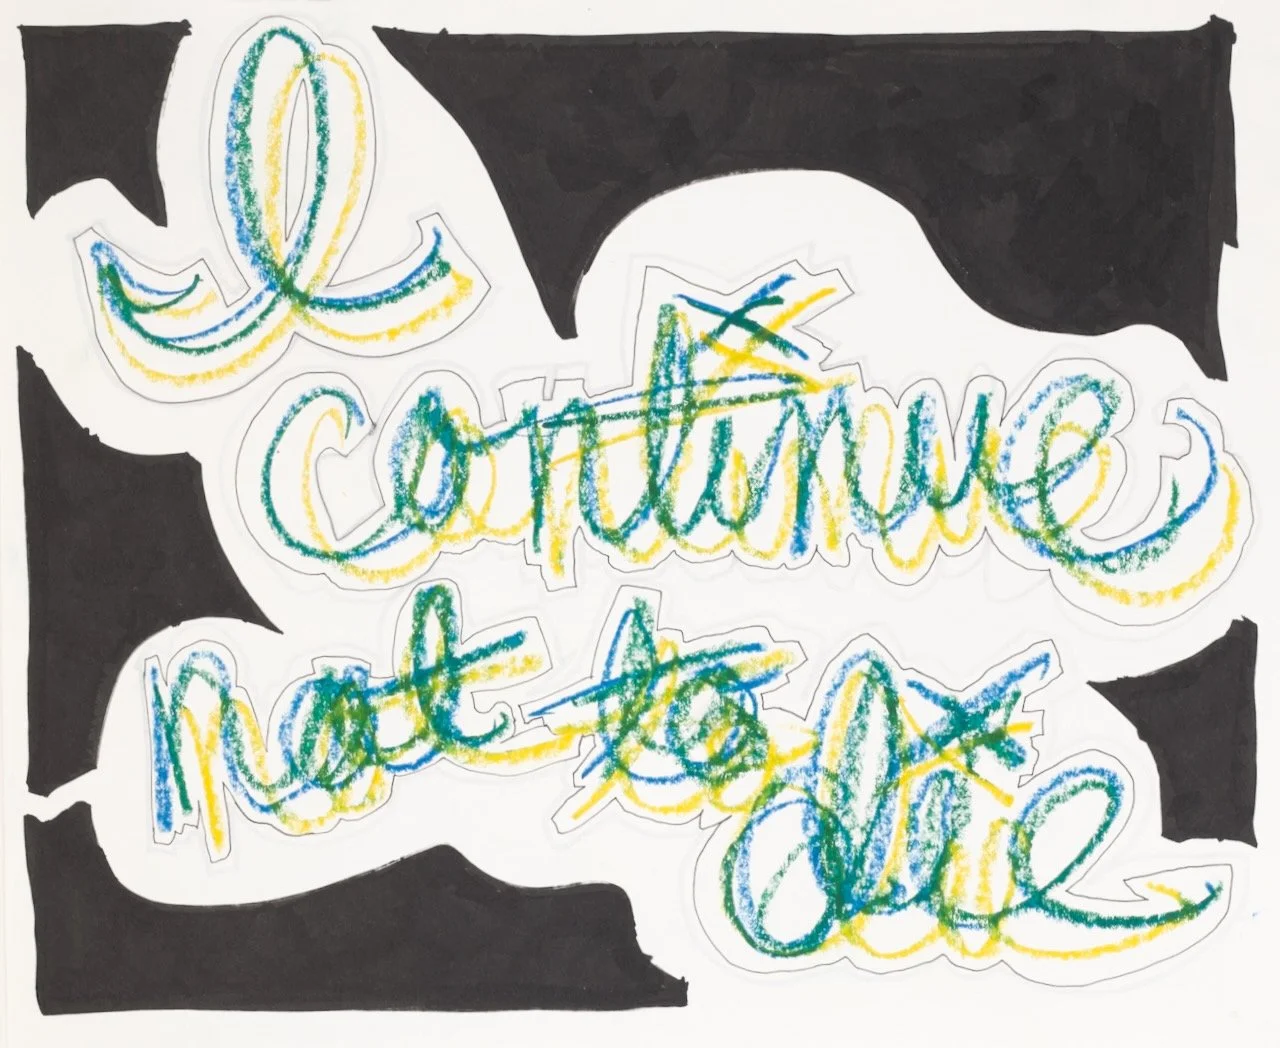 I
continue
not to
die